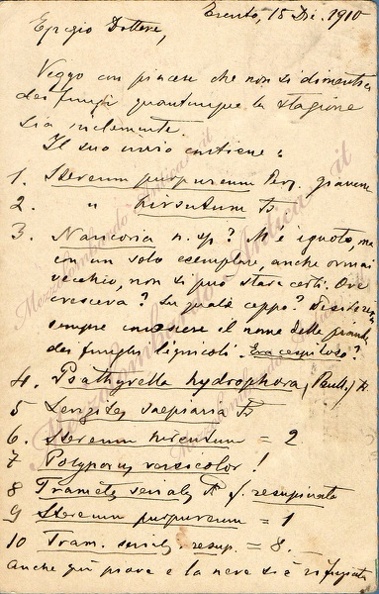 Trento, 15 Dic. 1910
Egregio Dottore,
Veggo con piacere che non si dimentica
dei funghi quantunque la stagione
sia inclemente.
Il suo invio contiene:
1. Stereum purpureum Pers. giovane
2. " hirsutum Fr
3. Naucoria n. sp? M'è ignoto, ma
con un solo esemplare, anche ormai
vecchio, non si può stare certi. Ove
cresceva? Su quale ceppo? Desidererei
sempre conoscere il nome delle piante
dei funghi lignicoli. Era cespitoso?
4. Psathyrella hydrophora (Bull.) Fr.
5 Lenzites saepiaria Fr
6. Stereum hirsutum = 2
7 Polyporus versicolor!
8 Trametes serialis Fr f. resupinata
9 Stereum purpureum = 1
10 Tram. serialis resup. = 8.
Anche qui piove e la neve si è rifugiata
Mezzolombardo Antica.it